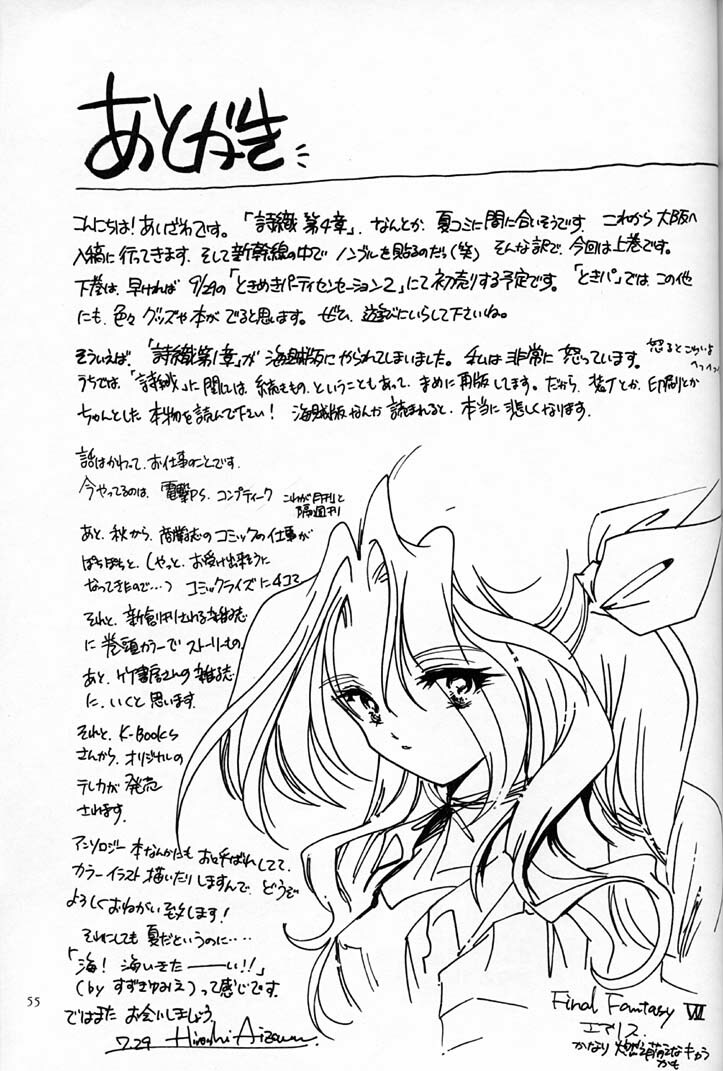 あとがき
こんにちは!あいざわです。「詩織 第4章」、なんとか、夏コミに間に合いそうです。これから大阪へ
入稿に行ってきます。そして新幹線の中でノンブルを貼るのだっ(笑) そんな訳で、今回は上巻です。
下巻は、早ければ 9/29の「ときめきパーティセンセーション2」にて初売りする予定です。「ときパ」では、この他
にも、色々グッズや本がでると思います。ぜひ、遊びにいらして下さいね。
そういえば、「詩織第1章」が海賊版にやられてしまいました。私は非常に怒っています。
怒るとこわいよ
へっへっへっ
うちでは、「詩織」に関しては、続きもの、ということもあって、まめに再版してます。だから、装丁とか、印刷とか
ちゃんとした本物を読んで下さい! 海賊版なんか読まれると、本当に悲しくなります。
話はかわって、お仕事のことです。
今やってるのは、電撃PS、コンプティーク
これが月刊と
隔週刊
あと、秋から、商業誌のコミックの仕事が
ぽちぽちと、(やっと、お受け出来そうに
なってきたので…) コミックライズに4コマ
それと、新創刊される雑誌
に巻頭カラーでストーリーもの。
あと、竹書房さんの雑誌
に、いくと思います。
それと、K-Books
さんから、オリジナルの
テレカが発売
されます。
アンソロジー本なんかにもお呼ばれしてて、
カラーイラスト描いたりしますんで、どうぞ
よろしくおねがい致します!
それにしても夏だというのに‥‥
「海!海いきたーーい!!」
(by すずきゆみえ)って感じです。
ではまたお会いしましょう。
7.29 Hiroshi Aizawa.
Final Fantasy VII
エアリス.
かなり 燃え萌えなキャラ
かも
55